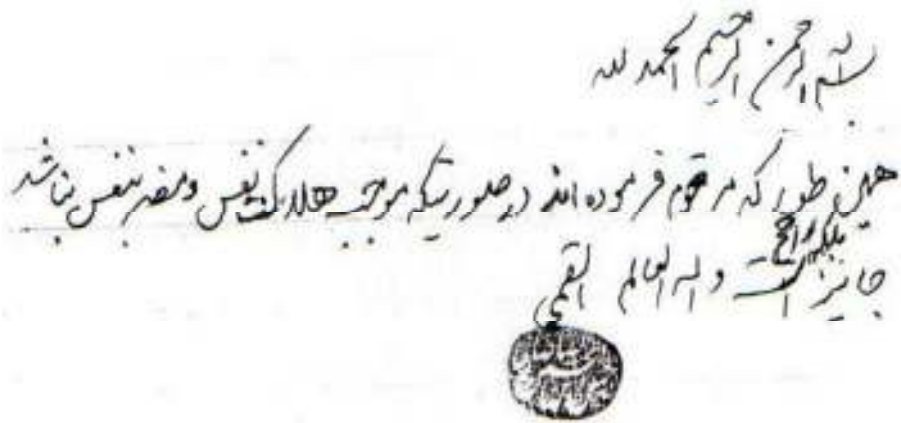 بسم الله الرحمن الرحیم الحمد لله
همین طور که مرقوم فرموده اند در صورتیکه موجب هلاکت نفس و مضر بنفس نباشد
بلکه راجح
جایز است والله العالم القمی